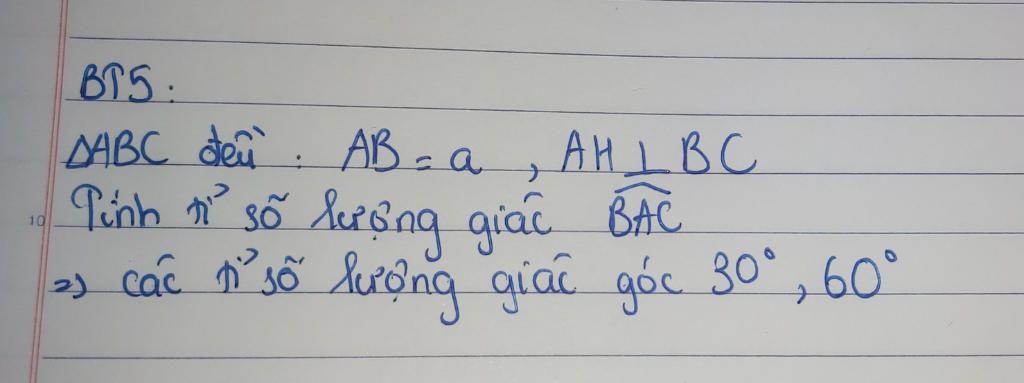 BT5:
ΔABC đều : AB = a , AH ⊥ BC
10 Tính tỉ số lượng giác \widehat{BAC}
=> các tỉ số lượng giác góc 30°, 60°